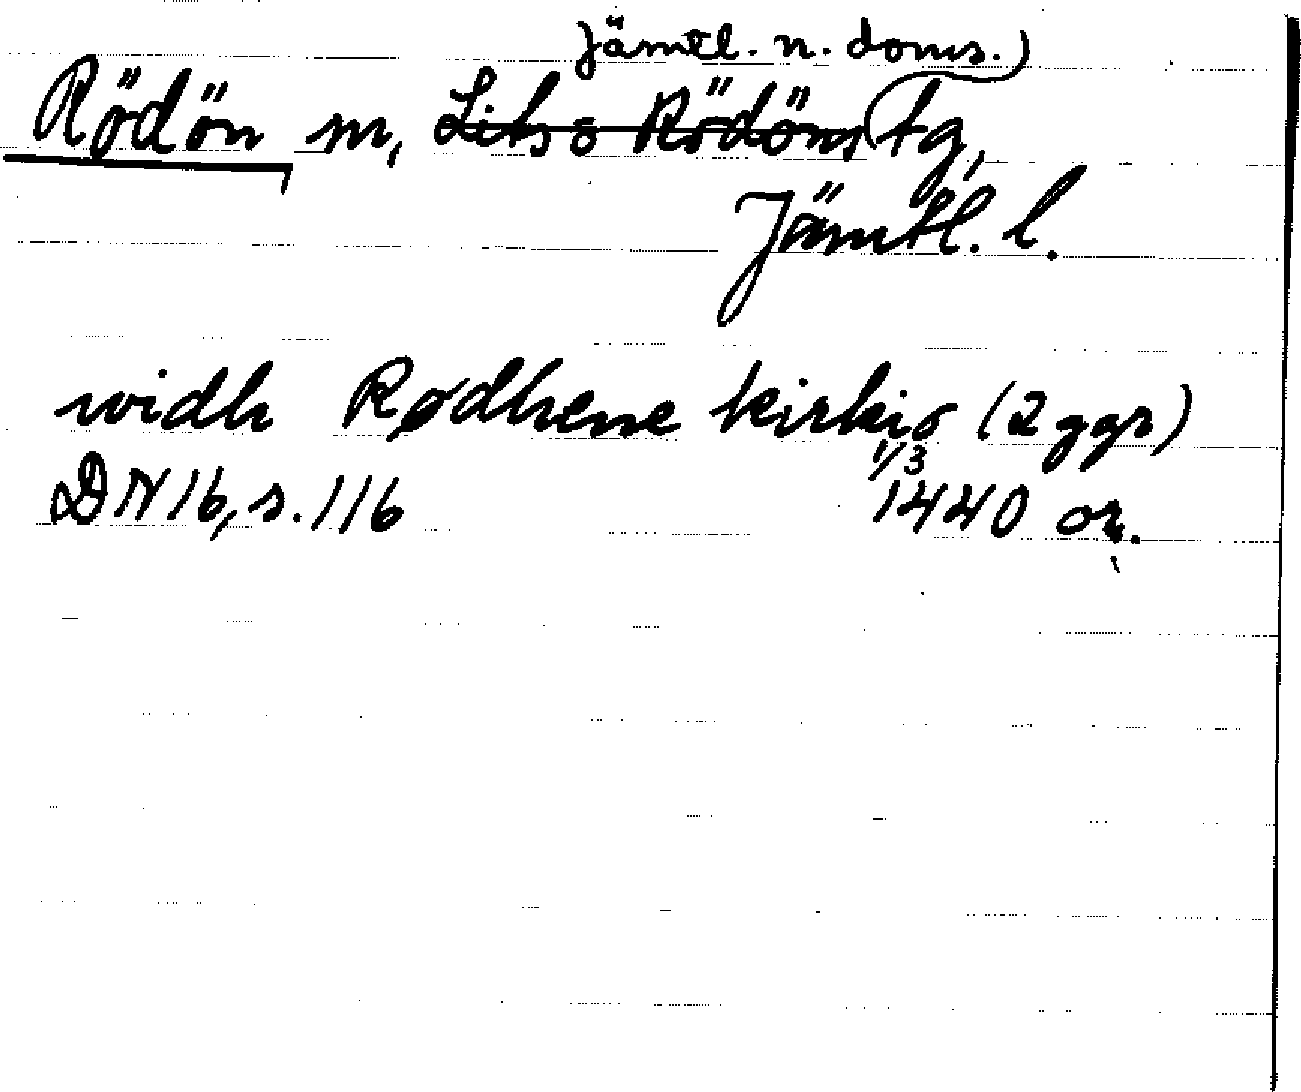 Jämtl. n. doms.)
Rödön sn, Lits o Rödöns tg,
Jämtl. l.
widh Rødhene kirkio (2 ggr)
1/3
DN 16, s. 116 1440 or.